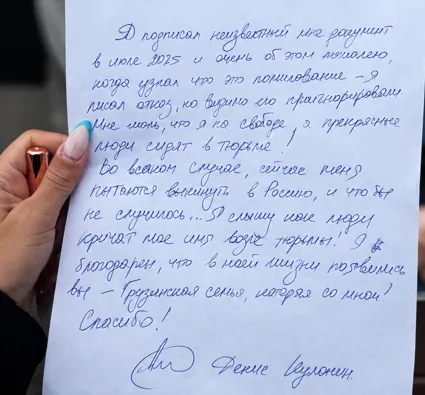 Я подписал неизвестный мне документ
в июле 2025 и очень об этом жалею,
когда узнал что это помилование – я
писал отказ, но видимо его проигнорировали
Мне жаль, что я на свободе, а прекрасные
люди сидят в тюрьме!
Во всяком случае, сейчас меня
пытаются выкинуть в Россию, и что бы
не случилось... Я слышу как люди
кричат мое имя возле тюрьмы! Я
благодарен, что в моей жизни появились
вы – Грузинская семья, которая со мной!
Спасибо!
Денис Кулонин.